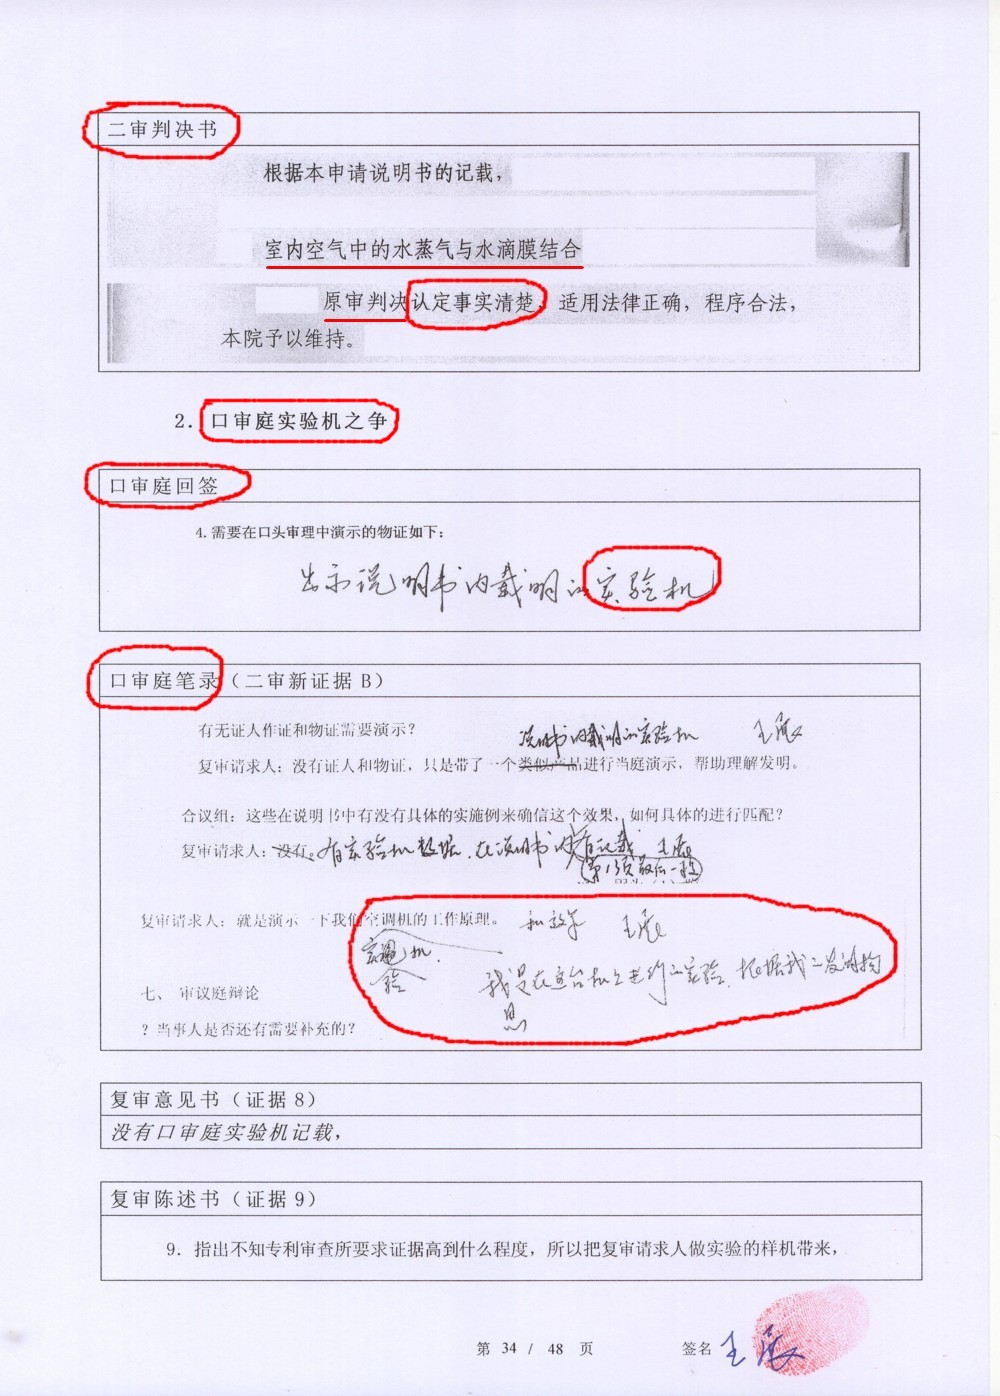 二审判决书
根据本申请说明书的记载，
室内空气中的水蒸气与水滴膜结合
原审判决认定事实清楚、适用法律正确，程序合法，
本院予以维持。
2. 口审庭实验机之争
口审庭回签
4.需要在口头审理中演示的物证如下：
出示说明书内载明的实验机
口审庭笔录（二审新证据B）
有无证人作证和物证需要演示？
说明书内载明的实验机 王
复审请求人：没有证人和物证，只是带了一个类似产品进行当庭演示，帮助理解发明。
合议组：这些在说明书中有没有具体的实施例来确信这个效果，如何具体的进行匹配？
复审请求人：没有。有实验机数据，在说明书内有记载 王
（第13页最后一段）
复审请求人：就是演示一下我们空调机的工作原理。 和效果 王
实验机.
我是在这台机上进行的实验，根据我的发明构思
七、 审议庭辩论
？当事人是否还有需要补充的？
复审意见书（证据8）
没有口审庭实验机记载，
复审陈述书（证据9）
9. 指出不知专利审查所要求证据高到什么程度，所以把复审请求人做实验的样机带来，
第 34 / 48 页 签名 王